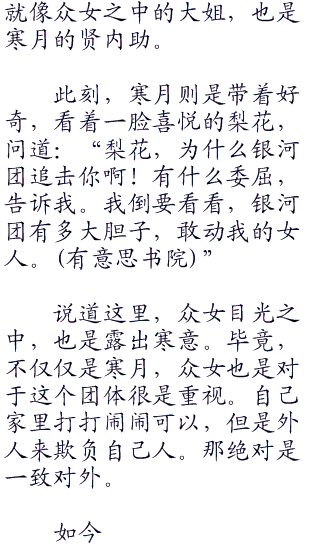 就像众女之中的大姐，也是
寒月的贤内助。
此刻，寒月则是带着好
奇，看着一脸喜悦的梨花，
问道：“梨花，为什么银河
团追击你啊！有什么委屈，
告诉我。我倒要看看，银河
团有多大胆子，敢动我的女
人。(有意思书院)”
说道这里，众女目光之
中，也是露出寒意。毕竟，
不仅仅是寒月，众女也是对
于这个团体很是重视。自己
家里打打闹闹可以，但是外
人来欺负自己人。那绝对是
一致对外。
如今